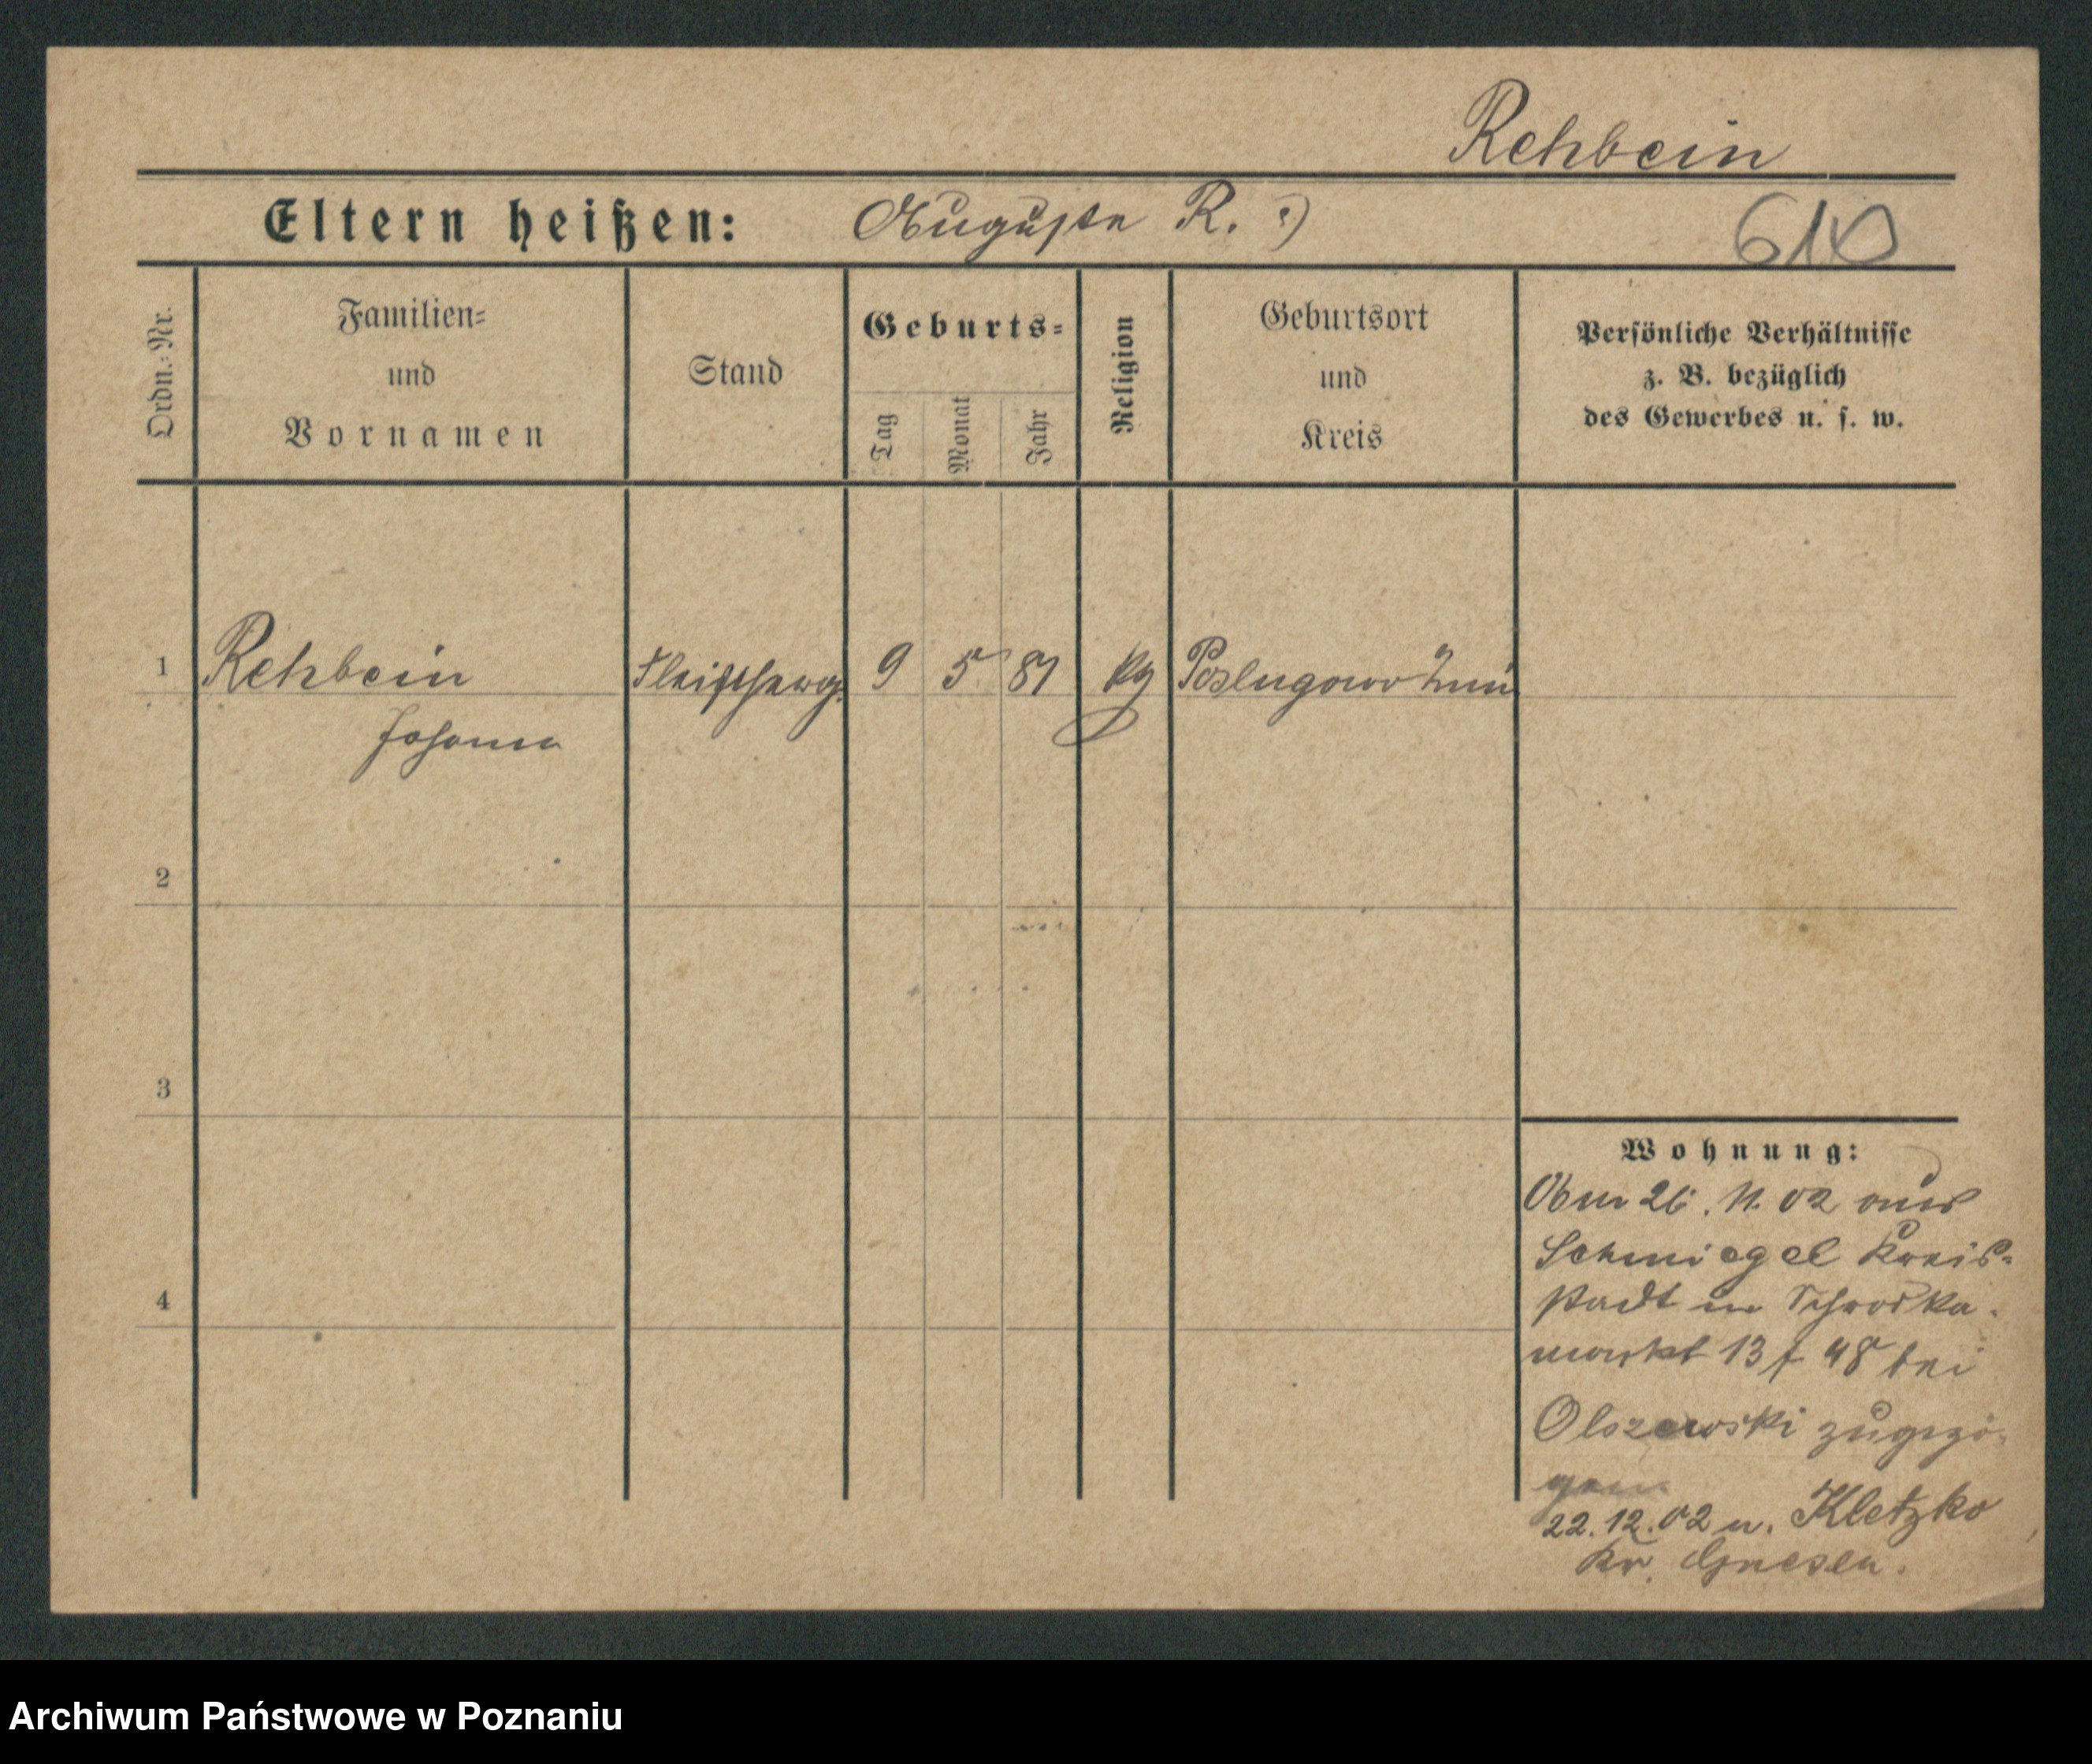 Rehbein
Eltern heißen: Auguste R. ?)
610
Ordn.-Nr.
Familien-
und
Vornamen
Stand
Geburts-
Tag
Monat
Jahr
Religion
Geburtsort
und
Kreis
Persönliche Verhältnisse
z. B. bezüglich
des Gewerbes u. s. w.
1 Rehbein Fleischerg. 9 5 81 Poslugowo Znin
Johann
2
3
4
Wohnung:
Am 26. 11. 02 aus
Schmiegel Kreis-
stadt in Schrodka-
markt 13 f 48 bei
Olszewski zugezo-
gen.
22. 12. 02 n. Kletzko
Kr. Gnesen.
Archiwum Państwowe w Poznaniu